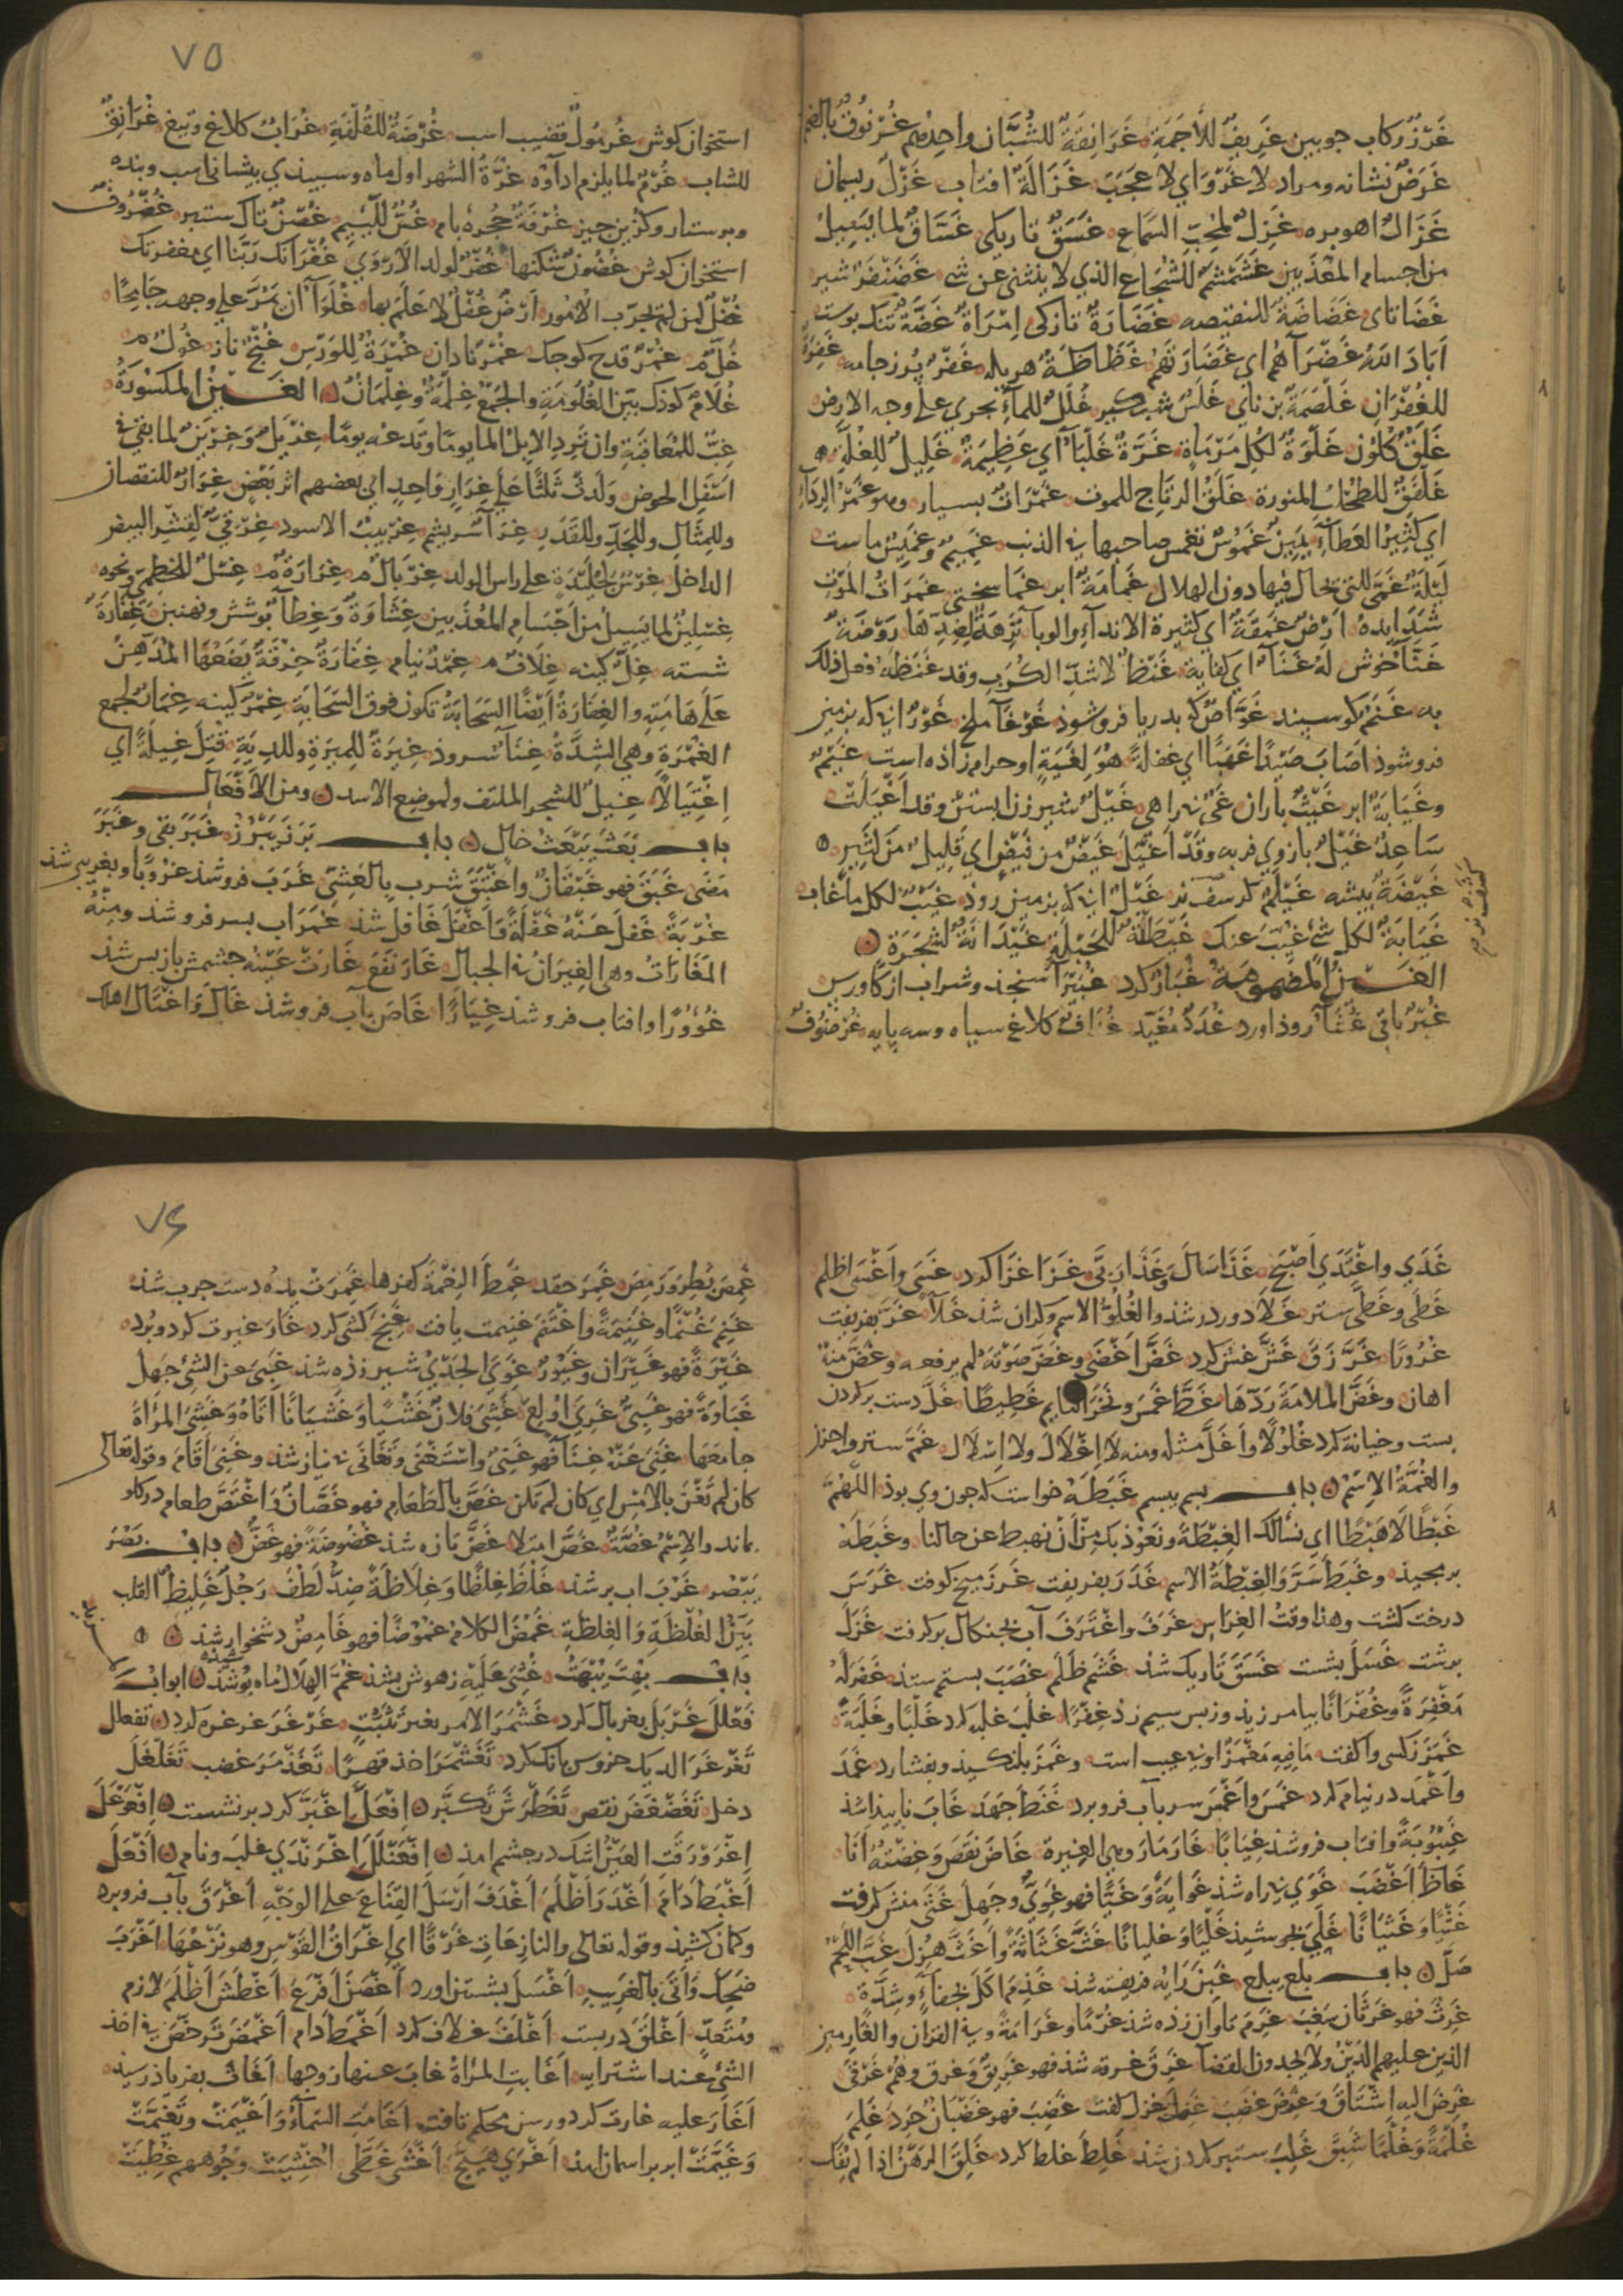 غَرْزٌ ركاب جوبين غَرِيفٌ للأَجَمَةِ غَرَانِقَةٌ للشُّبَّان واحِدُهم غُرْنُوقٌ بالضم
غَرَضٌ نشانه ومراد لا غَرْوَ اي لا عَجَبَ غَزَالَةٌ افتاب غَزْلٌ ريسمان
غَزَالٌ اهوبره غَزِلٌ لمُحِبّ السَّماع غَسَقٌ تاريكى غَسَّاقٌ لما يَسِيلُ
من اجسام المعَذَّبين غَشَمْشَمٌ للشجاع الذي لا ينثني عن شى غَضَنْفَرٌ شير
غَضَاتاى غَضَاضَةٌ للنقيصه غَضَارَةٌ تازكى اِمْرَاةٌ غَضَّةٌ تنك بوست
اَبَادَ اللهُ غَضْرَآهُم اي غَضَارَتَهُم غَظَاظَةٌ غَفْرٌ برز جامه غَفِرَةٌ
للغُفْرَانِ غَلْصَمَةٌ بن ناى غَلَسٌ غَلَلٌ للمآءِ يجري على وجه الارض
غَلَقٌ كلون غَلْوَةٌ لكلِ مَرْمَاةٍ غَلْبَآءُ اي عَظِيمَةٌ غَلِيلٌ للغُلَّةِ
غَلْفَقٌ للطحلب غَلَقُ الرتاج للموت غَمَرَاتٌ بسيار وهو غَمْرُ الرِدَآءِ
اي كَثِيْرُ العَطَآءِ يَمِينٌ غَمُوْسٌ تغمس صاحبها في الذنب غَمِيمٌ ماست
لَيْلَةٌ غَمَّى للتي يحال فيها دون الهلال غَمَامَةٌ ابر غَمَراتُ المَوْتِ
شَدَايِدهُ اَرْضٌ غَمِقَةٌ اي كثيرة الاندآءِ والوبآءِ نَزِهَةٌ لضِدِّهَا رَوْضَةٌ
غَنَّآءُ خوش لهُ غَنَآءٌ اي كفاية غَنْظٌ لاشدِّ الكَرْبِ وقد غَنَظَه وفعل ذلك
به غَنَمٌ كوسبند غَوَّاصٌ كه بدريا فروشود غَوْغَآ ملخ غَوْرٌ انك بزمين
فروشود اَصَابَ صَيْدًا غَهَبًا اي غفلةً هُوَ لِغَيَةٍ او حرام زاده است غَيْمٌ
وغَيَايَةٌ ابر غَيْثٌ باران غَىٌّ بيراهى غَيْلٌ شيرزن ابستن وقد اَغْيَلَتْ
سَاعِدٌ غَيْلٌ بازوي فربه وقَدْ اغْتِيَلَ غَيْضٌ مِن فَيْضٍ اي قَلِيلٌ مِنْ كَثِيرٍ
غَيْضَةٌ بيشه غَيْلٌ انك بزمين روذ غَيْبٌ لكل ماغاب
غَيَابَةٌ لكل شئٍ غَيَّبَ عنك غَيْدَانَةٌ لشجَرَةٍ
الغــين المضمومة غُبَارٌ كرد غُبَيْرَآءُ سنجذ وشراب از كاورس
غُبَّرٌ باقي غُثَآءٌ روذاورد غُدَافٌ كلاغ سياه وسه پايه غُرْضُوْفٌ
كرسفه نرم
٧٥
استخوان كوش غُرْمُولٌ قضيب اسب غُرْضَةٌ للقُلْفَةِ غُرَابٌ كلاغ وتيغ غُرَانِقٌ
للشاب غُرْمٌ لما يلزم اداؤه غُرَّةٌ الشهر اول ماه وسبيذي بيشانى اسب وبنده
وبرستار وكزين جيز غُرْفَةٌ حجره بام غُسٌّ للَّئِيمِ غُصْنٌ تاك ستبر غُضْرُوفٌ
استخوان كوش غُضُونٌ شكنها غُفْرٌ لولد الاَرْوَي غُفْرَانَكَ رَبَّنا اي مغفرتك
غُفْلٌ لمن لم يجرّب الامُور اَرْضٌ غُفْلٌ لا عَلَمَ بها غُلَوَآءُ ان يَمُرَّ على وجهه جَامِحًا
غُلٌّ م غُمَرٌ قدح كوجك غُمْرٌ نادان غُمْرَةٌ للوَرْسِ غُنْجٌ ناز غُولٌ م
غُلَامٌ كوذك بيّن الغُلُومَةِ والجمْعُ غِلْمَةٌ وغِلْمَانٌ الغَــينُ المكسُورَةُ
غِبٌّ للمُعَاقَبَةِ وان تَرِدَ الاِبِلُ المآ يومًا وتدعه يومًا غِرْيَلٌ وَغِرْيَنٌ لما بَقِيَ في
اسْفَلِ الحوض ولَدتْ ثلثًا عَلى غِرَارٍ وَاحِدٍ اي بعضهم اثر بَعْضٍ غِرَارٌ للنقصان
وللمِثَالِ وللحَدِّ وللقَدَرِ غِرَآءُ سريشم غِرْبِيبٌ الاسود غِرْقِئٌ لقِشْرِ البيض
الداخل غِرْسٌ جُلَيْدَةٍ على راس الولد غِرْبَالٌ م غِرَارَةٌ م غِسْلٌ للخطمِيّ ونحوِه
غِسْلِينٌ لما يَسِيلُ من اَجْسَامِ المُعَذَّبِين غِشَاوَةٌ وَغِطَآءٌ بُوشش
شسته غِلٌّ كينه غِلَافٌ م غِمْدٌ نيام غِفَارَةٌ خِرْقَةٌ يَضَعُهَا المُدَّهِنُ
عَلى هَامَتِهِ والغِفَارَةُ اَيْضًا السَحَابَةُ تكون فوق السَّحَابَةِ غِمْرٌ كينه غِمَارٌ لجمع
الغَمْرَةِ وهي الشِدَّةُ غِنَآءٌ سروذ غِيرَةٌ للمِيرَةِ وللدِيَةِ قُتِلَ غِيلَةً اي
اِغْتِيَالًا غِيْلٌ للشجر الملتف ولموضع الاسد ومن الاَفْعَال
باب بَعَثَ يَبْعَثُ خال باب بَرَزَ يَبْرُزُ غَبَرَ بقى وغَبَرَ
مَضَى غَبَقَ فهو غَبْقَانُ واغْتَبَقَ شرب بالعَشِيّ غَرَبَ فروشذ غُرُوبًا وبغريبى شذ
غُرْبَةً غفَلَ عَنْهُ غَفْلَةً وَاَغْفَلَ غَافل شذ غَمَرَ اب بسر فروشذ ومنهُ
المَغَارَاتُ وهى الغِيرَانُ في الجبال غَارَ نَفَعَ غَارَتْ عَيْنُهُ جشمش باز بس شذ
غُؤُورًا وافتاب فروشذ غِيَارًا غَاصَ بآب فروشذ غَالَ وَاغْتَالَ اهلك
غَدَي واغْتَدَي اَصْبَحَ غَذَا سَالَ وَغَذَا رَبَّى غَزَا غَزَا كرد غَسَى وَاَغْسَى اظلم
غَطَى وغَطَّى ستر غَلَا دور در شذ والغُلُوُّ الاسم وكران شذ غَلَآءً غَرَّ بفريفت
غُرُورًا غَرَّ زَقَّ غَشَّ غِش كرد غَضَّ اَغْضَى وغَضَّ صَوْتَهُ لم يرفعه وغَضَّ منهُ
اهان وغَضَّ الملامَةَ رَدَّهَا غَطَّ غَمَسَ ونَخَرَ النايم غَطِيطًا غَلَّ دست بركردن
بست وخيانه كرد غُلُولًا وَاَغَلَّ مثله ومنه لا اِغْلَالَ ولا اِسْلَال غَمَّ ستر واحزن
والغُمَّةُ الاِسْمُ باب بسم يبسم غَبَطَهُ خواست كه جون وي بوذ اللّهُمَّ
غَبْطًا لَا هَبْطًا اي نسألك الغِبْطَةَ ونَعُوْذ بك مِنْ اَنْ نهبط عن حالنا وغَبَطَهُ
وغَبَطَ سَرَّ وَالغِبْطَةُ الاسم غَدَرَ بفريفت غَرَزَ ميخ كوفت غَرَسَ
درخت كشت وهذا وقتُ الغِرَاسِ غَرَفَ واغْتَرَفَ آب بجنكال بركرفت غَزَلَ
برشت غَسَلَ بشست غَسَقَ تاريك شذ غَشَمَ ظَلَمَ غَصَبَ بستم ستذ غَفَرَ لَهُ
مَغْفِرَةً وغُفْرَانًا بيامرزيذ غَلَبَ غلبه كرد غَلَبًا وغَلَبَةً
غَمَزَ كسى وا كفت مَا فيه مَغْمَزٌ او بى عيب است وغَمَزَ بلنكيذ وبفشارد غَمَدَ
واَغْمَد در نيام كرد غَمَسَ واغْمَسَ سر بآب فروبرد غَنَظَ جَهَدَ غَابَ نابيذا شذ
غَيْبُوبَةً وافتاب فروشذ غِيَابًا غَارَ مَارَ وهي الغِيرة غَاضَ نَقَصَ وَغِضْتُهُ اَنَا
غَاظَ اَغْضَبَ غَوَي بى راه شذ غَوَايَةً وَغَيًّا فهو غَوِيٌّ وجَهِلَ غَثَى منش كرفت
غَثْيًا وَغَثَيَانًا غَلَى بجوشيذ غَلْيًا وَغليانًا غَثَّ غَثَاثَةً وَاَغَثَّ هُزِلَ غَبَّ اللَحْمُ
صَلَّ باب بلع يبلع غَبِنَ رَايَه فريفته شذ غَذِمَ اَكَلَ بجفآءٍ وشِدَّةٍ
غَرِثَ فهو غَرْثَان سَغِبَ غَرِمَ تاوان زده شذ غُرْمًا وغَرَامَةً وفي القران والغارمين
الذين عليهم الدَّيْنُ ولا يجدون القضآ غَرِقَ غرقه شذ فهو غَرِيقٌ وَغرق وهُمْ غَرْقَى
غَرِضَ اليه اشْتَاقَ غَزِلَ غزل كفت غَضِبَ فهو غَضْبَانُ حَرِدَ غَلِمَ
غُلْمَةً وَغَلَمًا شَبِقَ غَلِبَ ستبر كردن شذ غَلِطَ غلط كرد غَلِقَ الرهْنُ اذا لم يُفَك
٧٦
غَمِصَ بَطِرَ وَرَمِصَ غَمِرَ حقد غَمِطَ النِعْمَةَ كفرها غَمِرَتْ يدُه دست جرب شذ
غَنِمَ غُنْمًا وغَنِيمَةً وَاغْتَنَمَ غنيمت يافت غَنِجَ كشى كرد غَارَ غيرت كرد وبرد
غَيْرَةً فهو غَيْرَان وغَيُوْرٌ غَوِيَ الجَدْيُ شير زذه شذ غَبِيَ عن الشئ جَهِلَ
غَبَاوَةً فهو غَبِيٌّ غَرِيَ اُوْلِعَ غَشِيَ فلانًا غَشْيًا وَغَشَيَانًا اَتَاهُ وَغَشِىَ المرْاَةَ
جامَعَهَا غَنِيَ عَنْهُ غِنًا فهو غَنِيٌّ وَاسْتَغْنَى وتَغَانَى بى نياز شذ وغَنِيَ اَقَامَ وقوله تعالى
كان لم تَغْنَ بالاَمْسِ اي كان لم تكن غَصَّ بالطَعَامِ فهو غَصَّانُ وَاغْتَصَّ طعام در كلو
بماند والاِسْمُ غُصَّةٌ غَصَّ امتلا غَضَّ تازه شذ غُضُوضَةً فهو غَضٌّ باب بَصُرَ
يَبْصُر غَزُرَ اب برشذ غَلُظَ غِلَظًا وَغِلَاظَةً ضِدُّ لَطُفَ رَجُلٌ غَلِيظُ القلب
بَيّنُ الغُلْظَةِ وَالغِلظَةِ غَمُضَ الكلامُ غُمُوْضًا فهو غَامِضٌ دشخوار شذ
باب بُهِتَ يُبْهَتُ غُشِيَ عَلَيْهِ زهوش بشذ غُمَّ الهِلَالُ ماه بوشيده شذ ابواب
فَعْلَلَ غَرْبَلَ بغربال كرد غَشْمَرَ الامر بغير تَثَبُّتٍ غَرْغَرَ غرغره كرد تفعلل
تَغَرْغَرَ الديك خروس بانك كرد تَغَشْمَرَ اخذ قهرًا تَغَذْمَرَ غضب تَغَلْغَلَ
دخل تَغَضْغَضَ نقص تَغَطْرَسَ تَكَبَّر اِفْعَلَّ اِغْبَرَّ كرد برنشست اِفْعَوْعَلَ
اِغْرَوْرَقَت العَيْنُ اشك در جشم امذ افْعَنْلَلَ اغْرَنْدَي غلب ونام اَفْعَلَ
اَغْبَطَ دَامَ اَغْدَرَ اَظْلَمَ اَغْدَفَ اَرْسَلَ القِنَاعَ على الوَجْهِ اَغْرَقَ بآب فروبرد
وكمان كشيذ وقوله تعالى والنازِعَاتِ غَرْقًا اي اِغْرَاقُ القَوْسِ وهو نَزْعُهَا اَغْرَبَ
ضَحِكَ وَاَتَى بالغَرِيبِ اَغْصَنَ اَفْرَعَ اَغْطَشَ اَظْلَمَ لازم
ومُتَعَدٍّ اَغْلَقَ در ببست اَغْلَفَ غلاف كرد اَغْمَطَ دام اَغْمَضَ تَرَخَّصَ في اخذ
الشئِ عند اشترايه اَغَابَتِ المرْاَةُ غابَ عنها زوجها اَغَاثَ بفريا ذرسيذ
اَغَارَ عليه غارت كرد ورسن محكم تافت اَغَامَتِ السَّمَآءُ وَاَغْيَمَتْ وتَغَيَّمَتْ
وَغَيَّمَتْ ابر بر اسمان امذ اَغْرَي هَيَّجَ اَغْشَى غَطَّى اُغْشِيَتْ وجُوْههم غُطِيَتْ